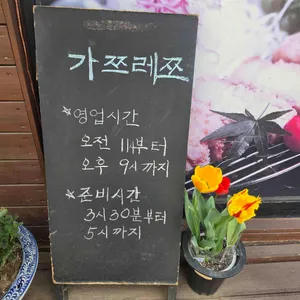 가쯔레쯔
*영업시간
오전 11시부터
오후 9시까지
*준비시간
3시30분부터
5시까지